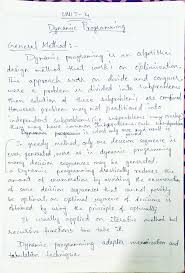 UNIT-4
Dynamic Programming
General Method:-
Dynamic programming is an algorithm
design method that work on optimization.
This approach work on divide and conquer
were a problem is divided into subproblems
then solution of these subproblems are combined
However problem may not partitioned into
independent subproblems subproblems may
they may have common
Dynamic programming is used only
In greedy method, only one decision sequence is
ever generated were as in dynamic programming
many decision sequences may be generated.
Dynamic programming drastically reduces the
amount of enumeration by avoiding the enumeration
of some decision sequences that cannot possibly
be optimal an optimal sequence of decisions is
obtained by using the principle of optimality.
It usually applied on iterative method but
recursive functions too take it.
Dynamic programming adapter memoization and
tabulation technique.